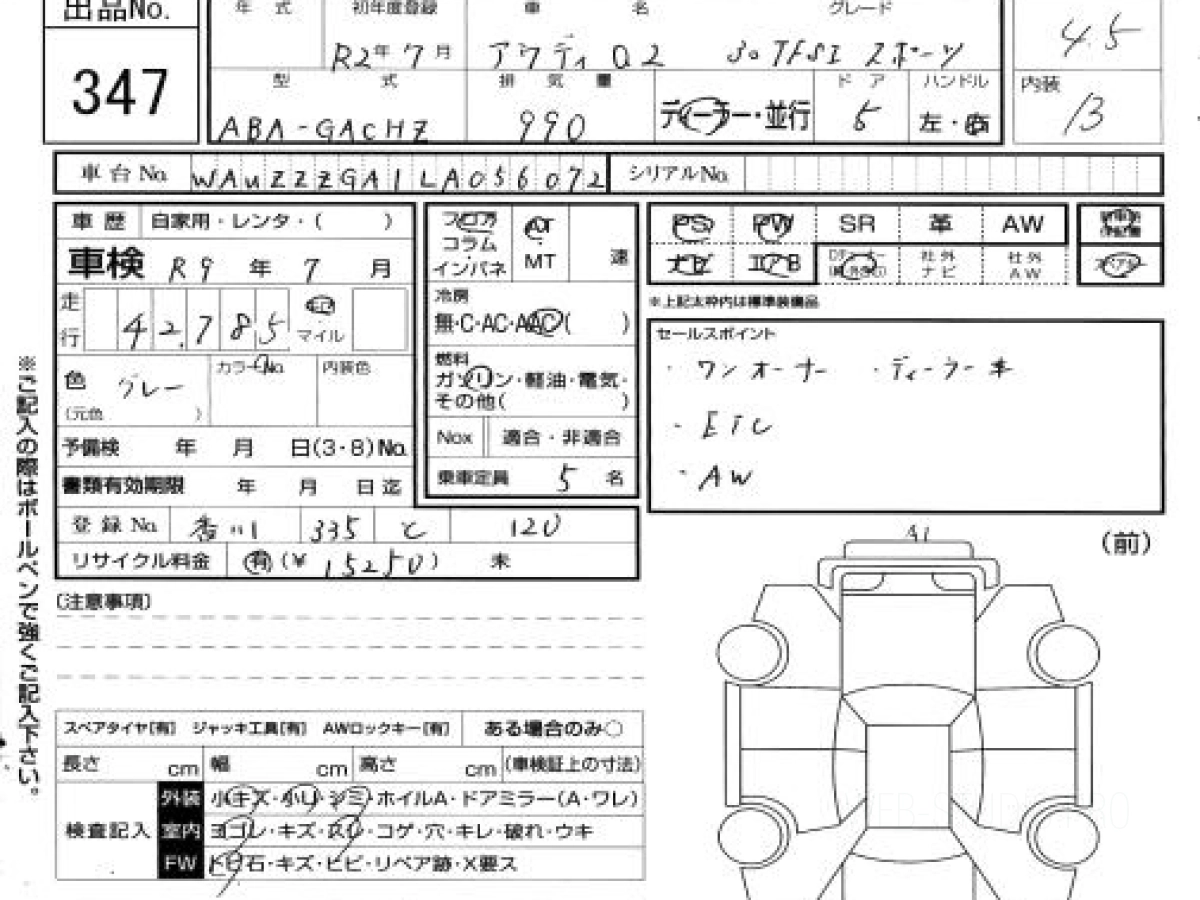 出品No.
347
年式 初年度登録 車名 グレード
R2年 7月 アウディ Q2 30 TFSI スポーツ
4.5
型式 排気量 ドア ハンドル 内装
ABA-GACHZ 990 ディーラー・並行 5 左・右 B
車台No. WAUZZZGA1LA056072 シリアルNo.
車歴 自家用・レンタ・( )
車検 R9年 7月
走行 42,785 キロ マイル
色 グレー カラーNo. 内装色
(元色 )
予備検 年 月 日(3・8)No.
書類有効期限 年 月 日迄
登録No. 香川 335 120
リサイクル料金 有(¥15250) 未
フロア AT
コラム
インパネ MT 速
冷房
無・C・AC・AAC( )
燃料
ガソリン・軽油・電気・
その他( )
Nox 適合・非適合
乗車定員 5名
PS PW SR 革 AW
ナビ エアB 社外ナビ 社外AW
スペアキー
※上記太枠内は標準装備品
セールスポイント
・ワンオーナー ・ディーラー車
・ETC
・AW
(注意事項)
A1
(前)
スペアタイヤ[有] ジャッキ工具[有] AWロックキー[有] ある場合のみ○
長さ cm 幅 cm 高さ cm (車検証上の寸法)
検査記入
外装 小キズ・小U・シミ・ホイルA・ドアミラー(A・ワレ)
室内 ヨゴレ・キズ・スレ・コゲ・穴・キレ・破れ・ウキ
FW トビ石・キズ・ヒビ・リペア跡・X要ス
※ご記入の際はボールペンで強くご記入下さい。